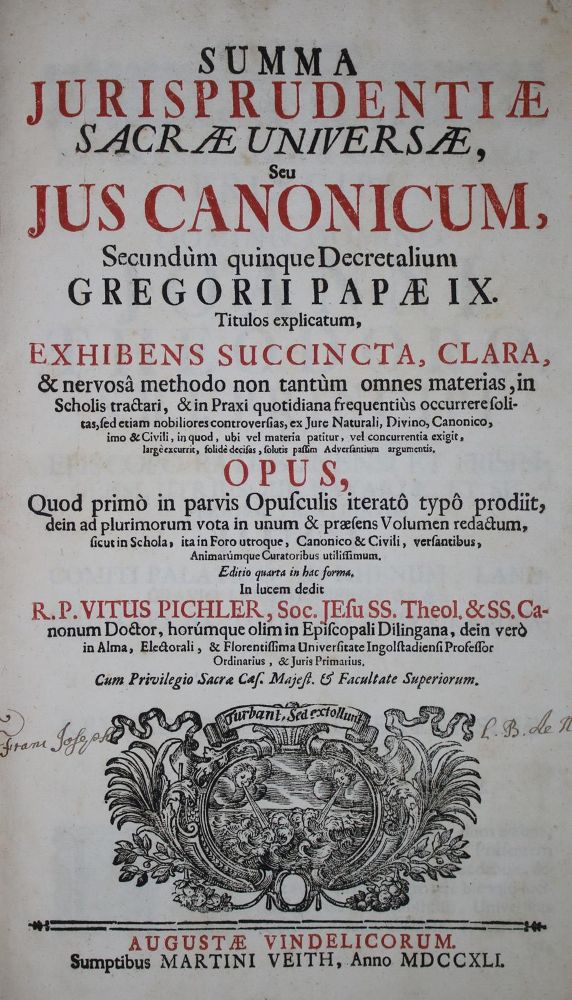 SUMMA
JURISPRUDENTIÆ
SACRÆ UNIVERSÆ,
Seu
JUS CANONICUM,
Secundùm quinque Decretalium
GREGORII PAPÆ IX.
Titulos explicatum,
EXHIBENS SUCCINCTA, CLARA,
& nervosâ methodo non tantùm omnes materias, in
Scholis tractari, & in Praxi quotidiana frequentiùs occurrere ſoli-
tas, ſed etiam nobiliores controverſias, ex Jure Naturali, Divino, Canonico,
imo & Civili, in quod, ubi vel materia patitur, vel concurrentia exigit,
largè excurrit, ſolidè deciſas, ſolutis paſſim Adverſantium argumentis.
OPUS,
Quod primò in parvis Opuſculis iteratô typô prodiit,
dein ad plurimorum vota in unum & præſens Volumen redactum,
ſicut in Schola, ita in Foro utroque, Canonico & Civili, verſantibus,
Animarúmque Curatoribus utiliſſimum.
Editio quarta in hac forma.
In lucem dedit
R. P. VITUS PICHLER, Soc. JEſu SS. Theol. & SS. Ca-
nonum Doctor, horúmque olim in Epiſcopali Dilingana, dein verò
in Alma, Electorali, & Florentiſſima Univerſitate Ingolſtadienſi Profeſſor
Ordinarius, & Juris Primarius.
Cum Privilegio Sacræ Cæſ. Majeſt. & Facultate Superiorum.
Turbant, Sed extollunt
Franc Joseph
L. B. de
AUGUSTÆ VINDELICORUM.
Sumptibus MARTINI VEITH, Anno MDCCXLI.